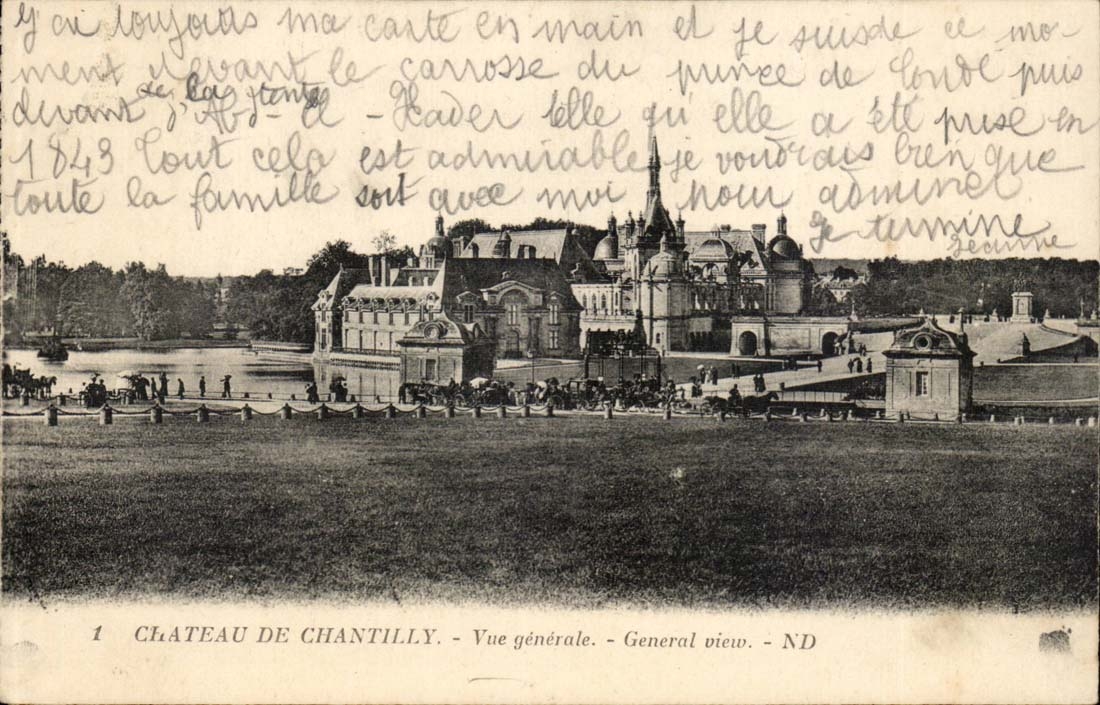 J'ai toujours ma carte en main et je suis de ce mo-
ment devant le carrosse du prince de Condé puis
devant de la tente d'Abd-el-Kader telle qu'elle a été prise en
1843 Tout cela est admirable je voudrais bien que
toute la famille soit avec moi pour admirer
Je termine
Jeanne
1 CHATEAU DE CHANTILLY. - Vue générale. - General view. - ND